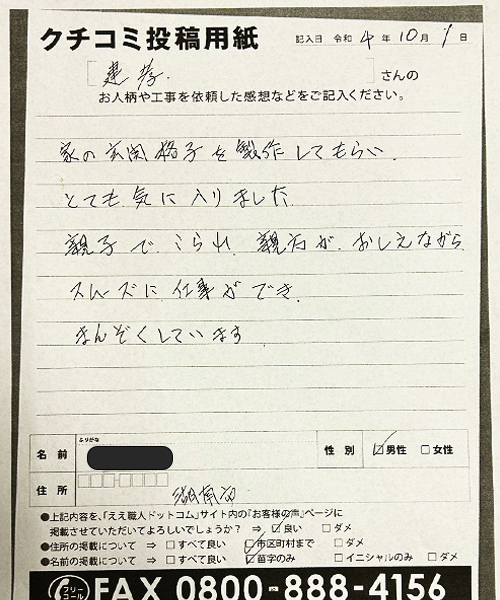 クチコミ投稿用紙
記入日 令和 4 年 10 月 1 日
建 孝 さんの
お人柄や工事を依頼した感想などをご記入ください。
家の玄関格子を製作してもらい、
とても気に入りました
親子でこられ、親方が、おしえながら
スムーズに仕事ができ、
まんぞくしています
ふりがな
名前
性別 ☑男性 □女性
住所
湖南市
●上記内容を、「ええ職人ドットコム」サイト内の『お客様の声』ページに
掲載させていただいてよろしいでしょうか? ⇒ ☑良い □ダメ
●住所の掲載について ⇒ □すべて良い ☑市区町村まで □ダメ
●名前の掲載について ⇒ □すべて良い ☑苗字のみ □イニシャルのみ □ダメ
フリーコール FAX 0800-888-4156